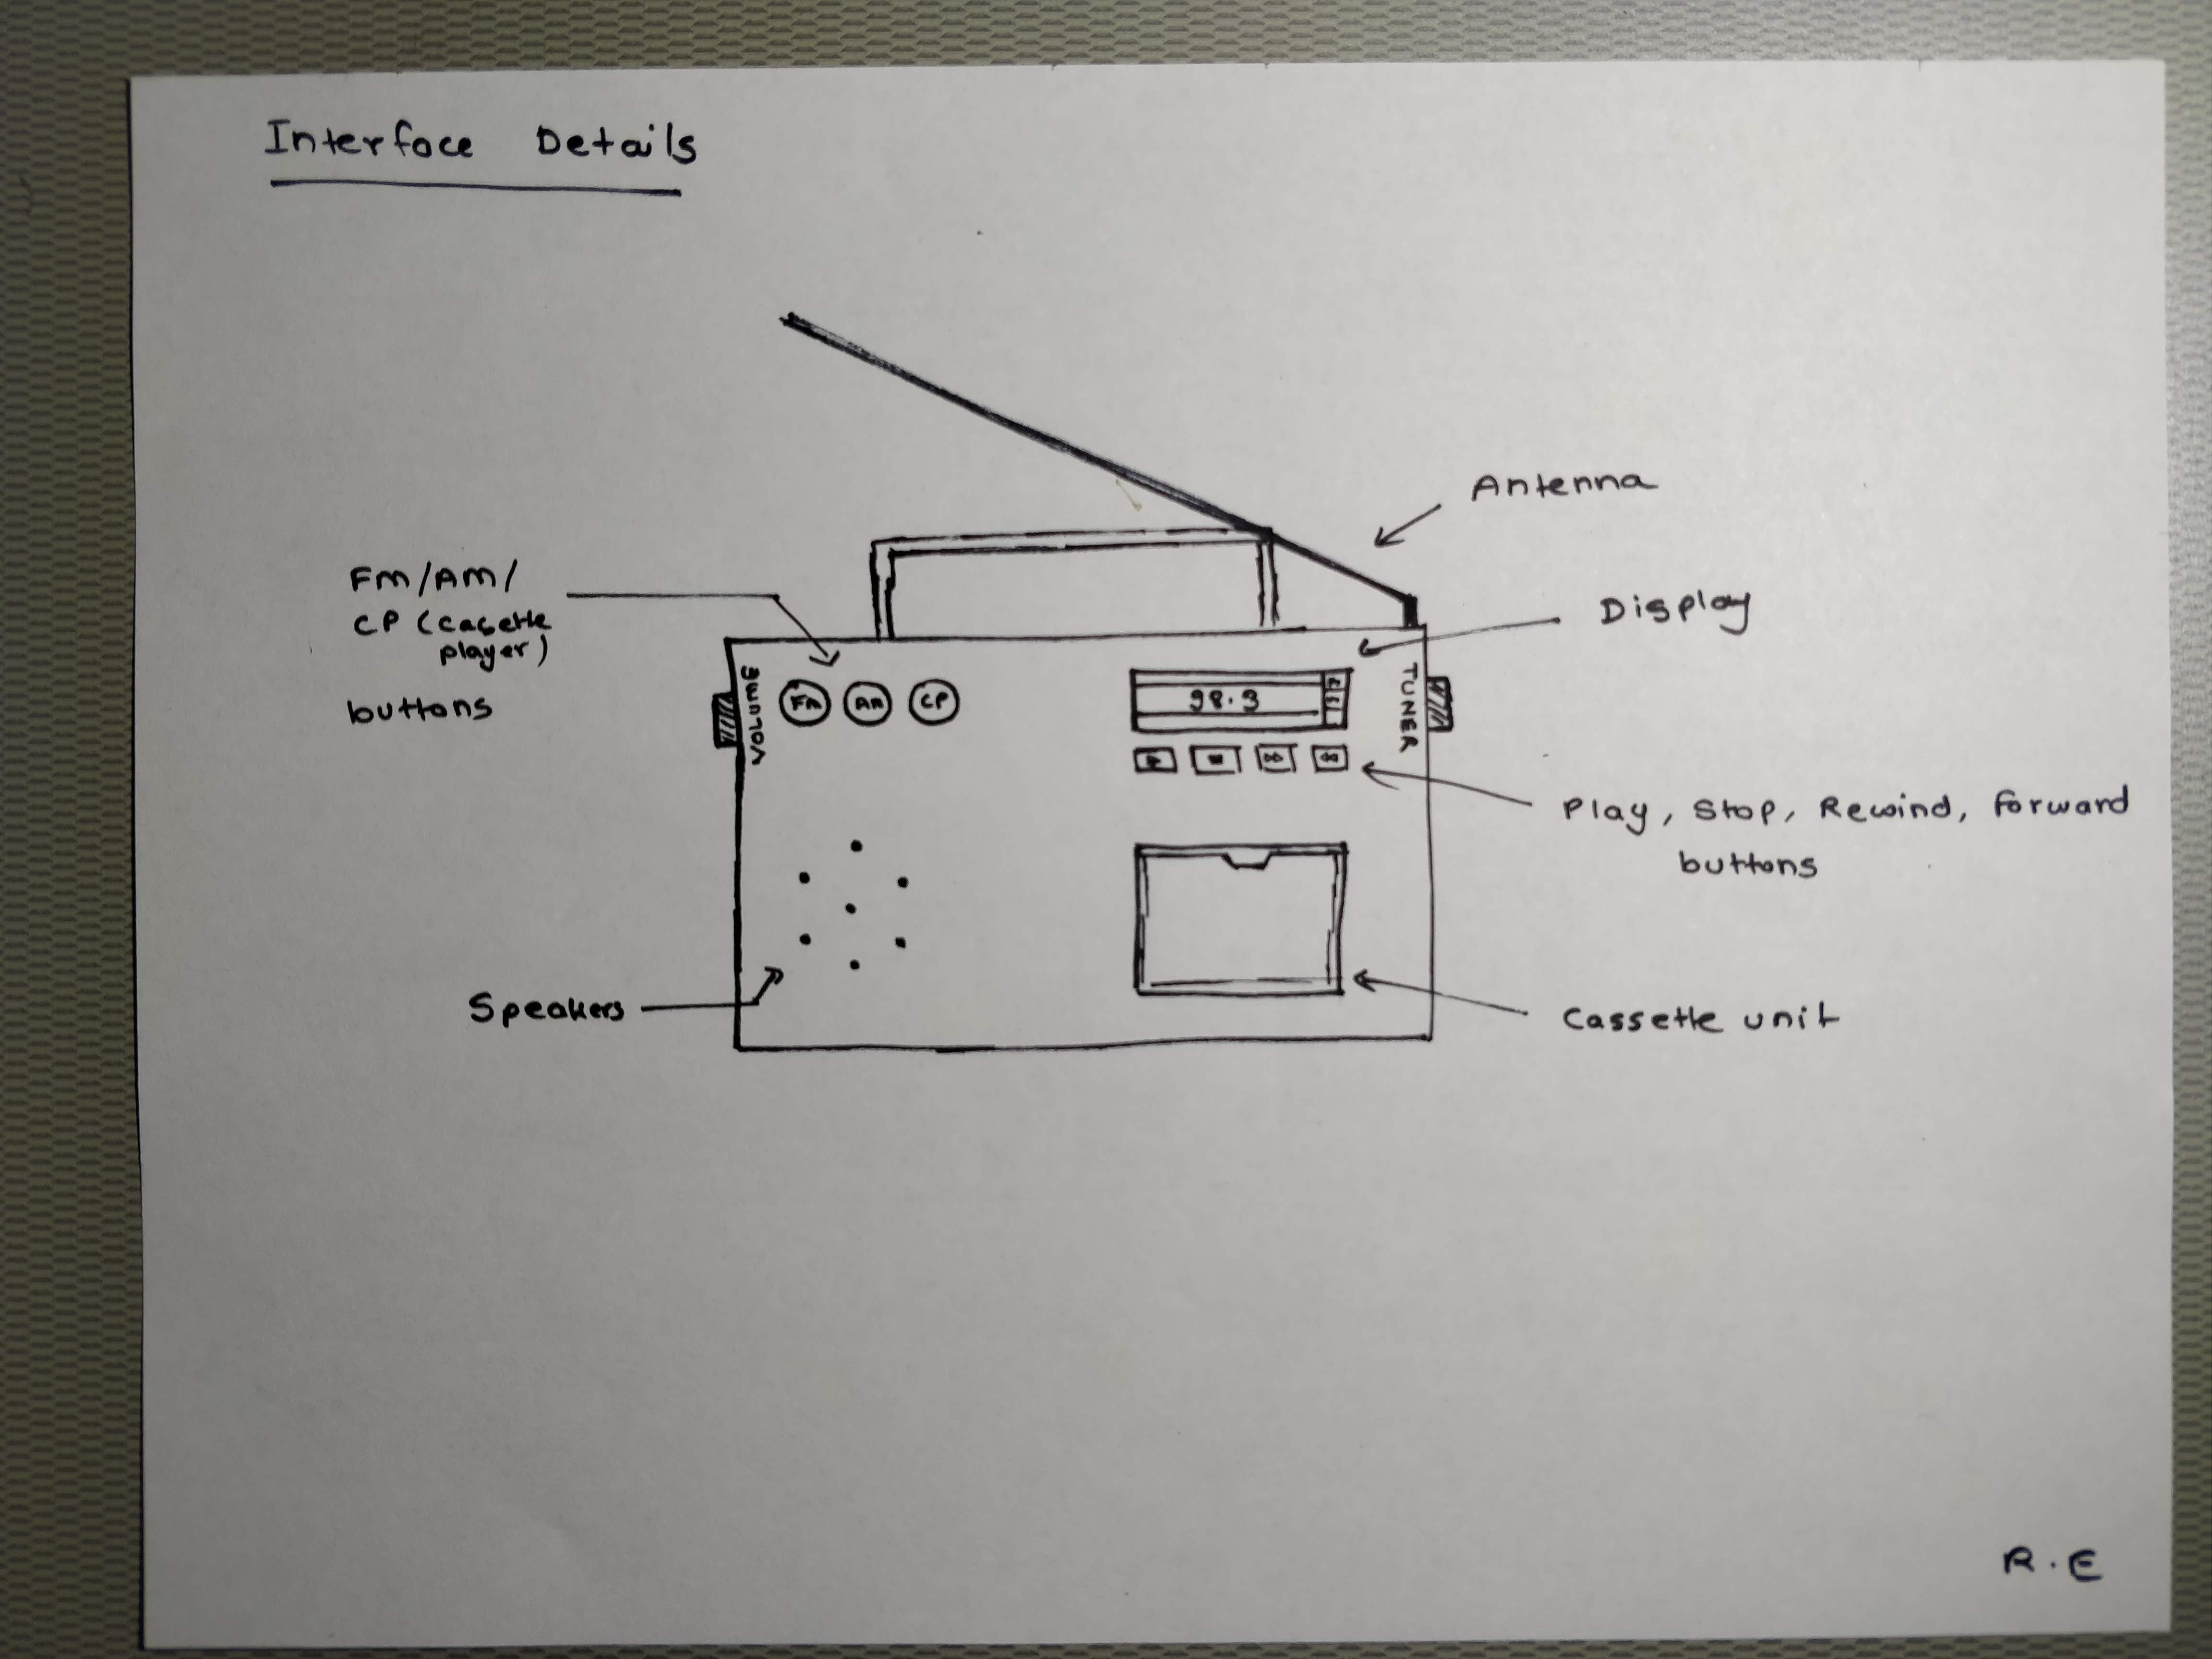 Interface Details
Antenna
FM/AM/
CP (casette
player)
buttons
Display
VOLUME
FM
AM
CP
98.3
TUNER
Play, Stop, Rewind, Forward
buttons
Speakers
Cassette unit
R.E